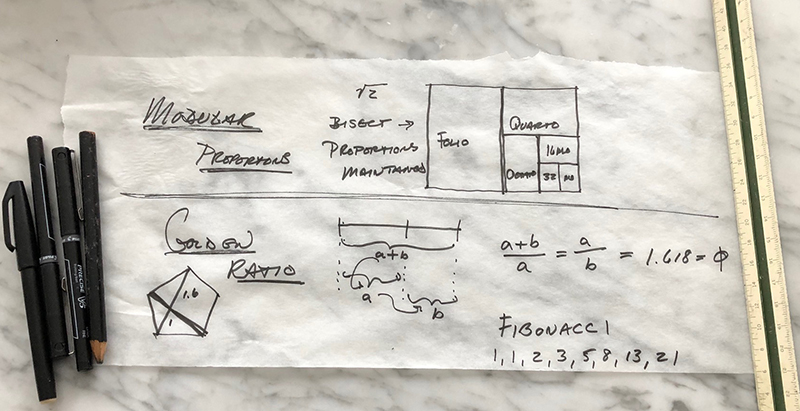 MODULAR
PROPORTIONS
√2
BISECT →
PROPORTIONS
MAINTAINED
FOLIO
QUARTO
OCTAVO
16MO
32 MO
GOLDEN
RATIO
1.6
1
a+b
a
b
a+b/a = a/b = 1.618 = ϕ
FIBONACCI
1, 1, 2, 3, 5, 8, 13, 21